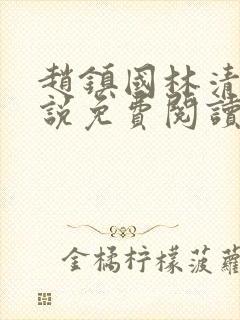 趙鎮國林清
說免費閱讀
金橘柠檬菠蘿